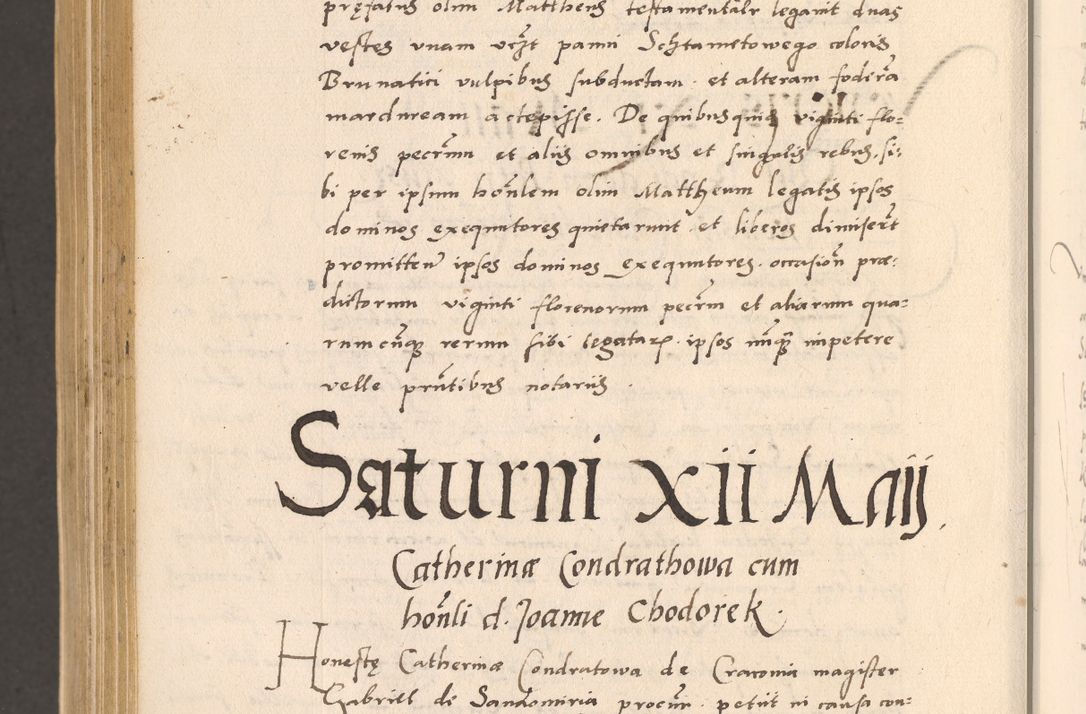 pręfatus olim Mattheus testamentalr̃ legavit duas
vestes unam vcz̃t panni Schtametowego coloris
Brunatici vulpibus subductam. et alteram foder̃a
marduream accepisse. De quibusquis viginti flo=
renis pecr̃um et aliis omnibus et singulis rebus si=
bi per ipsum hoñlem olim Mattheum legatis ipsos
dominos exequutores quietarunt et liberos dimiser̃t
promitteñ ipsos dominos exequutores. occasioñ præ=
dictorum viginti florenorum pecr̃m et aliarum qua=
rumcũq rerum sibi legatarꝝ. ipsos nũq impetere
velle prñtibus notariis.
Saturni xii Maij.
Catherinæ Condrathowa cum
hoñli d. Joanne Chodorek.
Honestę Catherinæ Condratowa de Cracovia magister
Gabriel de Sandomiria procur̃. petiit in causa con=